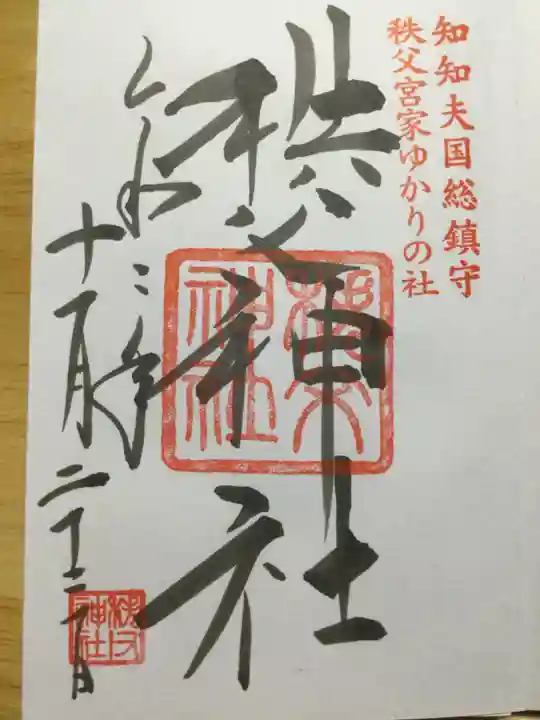 知知夫国総鎮守
秩父宮家ゆかりの社
秩父神社
秩父
神社
令和二年
十一月二十二日
秩父
神社